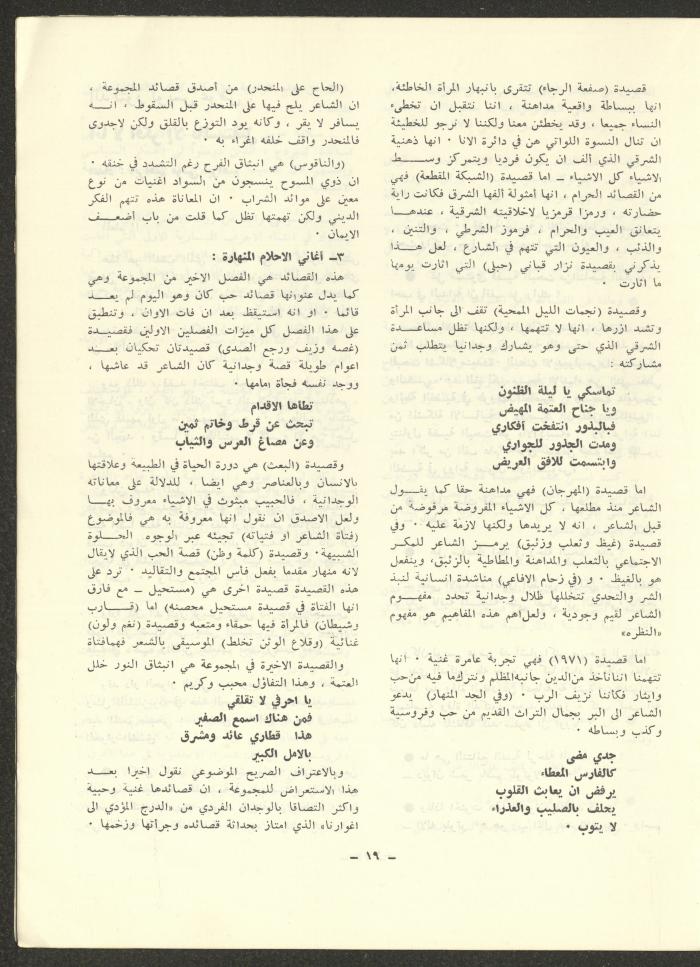 قصيدة (صفعة الرجاء) تتقرى بانبهار المرأة الخاطئة،
انها ببساطة واقعية مداهنة ، اننا نتقبل ان تخطىء
النساء جميعا ، وقد يخطئن معنا ولكننا لا نرجو للخطيئة
ان تنال النسوة اللواتي هن في دائرة الانا ٠ انها ذهنية
الشرقي الذي ألف ان يكون فرديا ويتمركز وســـط
الاشياء كل الاشياء ــ اما قصيدة (الشبكة المقطعة) فهي
من القصائد الحرام ، انها أمثولة ألفها الشرق فكانت راية
حضارته ، ورمزا قرمزيا لاخلاقيته الشرقية ، عندهـــا
يتعانق العيب والحرام ، فرموز الشرطي ، والتنين ،
والذئب ، والعيون التي تتهم في الشارع ، لعل هـــذا
يذكرني بقصيدة نزار قباني (حبلى) التي اثارت يومها
ما اثارت ٠
وقصيدة (نجمات الليل الممحية) تقف الى جانب المرأة
وتشد ازرها ، انها لا تتهمها ، ولكنها تظل مساعـــدة
الشرقي الذي حتى وهو يشارك وجدانيا يتطلب ثمن
مشاركته :
تماسكي يا ليلة الظنون
ويا جناح العتمة المهيض
فبالبذور انتفخت أفكاري
ومدت الجذور للجواري
وابتسمت للافق العريض
اما قصيدة (المهرجان) فهي مداهنة حقا كما يقـــول
الشاعر منذ مطلعها ، كل الاشياء المفروضة مرفوضة من
قبل الشاعر ، انه لا يريدها ولكنها لازمة عليه ٠ وفي
قصيدة (غيظ وثعلب وزئبق) يرمـــز الشاعر للمكـر
الاجتماعي بالثعلب والمداهنة والمطاطية بالزئبق، وينفعل
هو بالغيظ ٠ و (في زحام الافاعي) مناشدة انسانية لنبذ
الشر والتحدي تتخللها ظلال وجدانية تحدد مفهـــوم
الشاعر لقيم وجودية ، ولعل اهم هذه المفاهيم هو مفهوم
«النظره»
اما قصيدة (١٩٧١) فهي تجربة عامرة غنية ٠ انها
تتهمنا اننا نأخذ من الدين جانبه المظلم ونترك ما فيه من حب
وايثار فكأننا نزيف الرب ٠ (وفي الجد المنهار) يدعو
الشاعر الى البر بجمال التراث القديم من حب وفروسية
وكذب وبساطه ٠
جدي مضى
كالفارس المعطاء
يرفض ان يعابث القلوب
يحلف بالصليب والعذراء
لا يتوب ٠
(الحاح على المنحدر) من أصدق قصائد المجموعة ،
ان الشاعر يلح فيها على المنحدر قبل السقوط ، انـــه
يسافر لا يقر ، وكأنه يود التوزع بالقلق ولكن لاجدوى
فالمنحدر واقف خلفه اغراء به ٠
(والناقوس) هي انبثاق الفرح رغم التشدد في خنقه ٠
ان ذوي المسوح ينسجون من السواد اغنيات من نوع
معين على موائد الشراب ٠ ان المعاناة هذه تتهم الفكر
الديني ولكن تهمتها تظل كما قلت من باب أضعـــف
الايمان ٠
٣ــ أغاني الاحلام المنهارة :
هذه القصائد هي الفصل الاخير من المجموعة وهي
كما يدل عنوانها قصائد حب كان وهو اليوم لم يعـــد
قائما ٠ او انه استيقظ بعد ان فات الاوان ، وتنطبق
على هذا الفصل كل ميزات الفصلين الاولين فقصيـــدة
(غصه وزيف ورجع الصدى) قصيدتان تحكيان بعـــد
اعوام طويلة قصة وجدانية كان الشاعر قد عاشها ،
ووجد نفسه فجأة امامها ٠
تطأها الاقدام
تبحث عن قرط وخاتم ثمين
وعن مصاغ العرس والثياب
وقصيدة (البعث) هي دورة الحياة في الطبيعة وعلاقتها
بالانسان وبالعناصر وهي ايضا ، للدلالة على معاناته
الوجدانية ، فالحبيب مبثوث في الاشياء معروف بهـــا
ولعل الاصدق ان نقول انها معروفة به هي فالموضوع
(فتاة الشاعر او فتياته) تجيئه عبر الوجوه الحلـــوة
الشبيهة٠ وقصيدة (كلمة وظن) قصة الحب الذي لايقال
لانه منهار مقدما بفعل فأس المجتمع والتقاليد ٠ ترد على
هذه القصيدة قصيدة اخرى هي (مستحيل ــ مع فارق
انها الفتاة في قصيدة مستحيل محصنه) اما (قـــارب
وشيطان) فالمرأة فيها حمقاء ومتعبه وقصيدة (نغم ولون)
غنائية (وقلاع الوثن تختلط) الموسيقى بالشعر فهمافتاة
والقصيدة الاخيرة في المجموعة هي انبثاق النور خلل
العتمة ، وهذا التفاؤل محبب وكريم ٠
يا احرفي لا تقلقي
فمن هناك اسمع الصفير
هذا قطاري عائد ومشرق
بالامل الكبير
وبالاعتراف الصريح الموضوعي نقول اخيرا بعـــد
هذا الاستعراض للمجموعة ، ان قصائدها غنية وحبية
واكثر التصاقا بالوجدان الفردي من «الدرج المؤدي الى
اغوارنا» الذي امتاز بحداثة قصائده وجرأتها وزخمها ٠
ــ ١٩ ــ